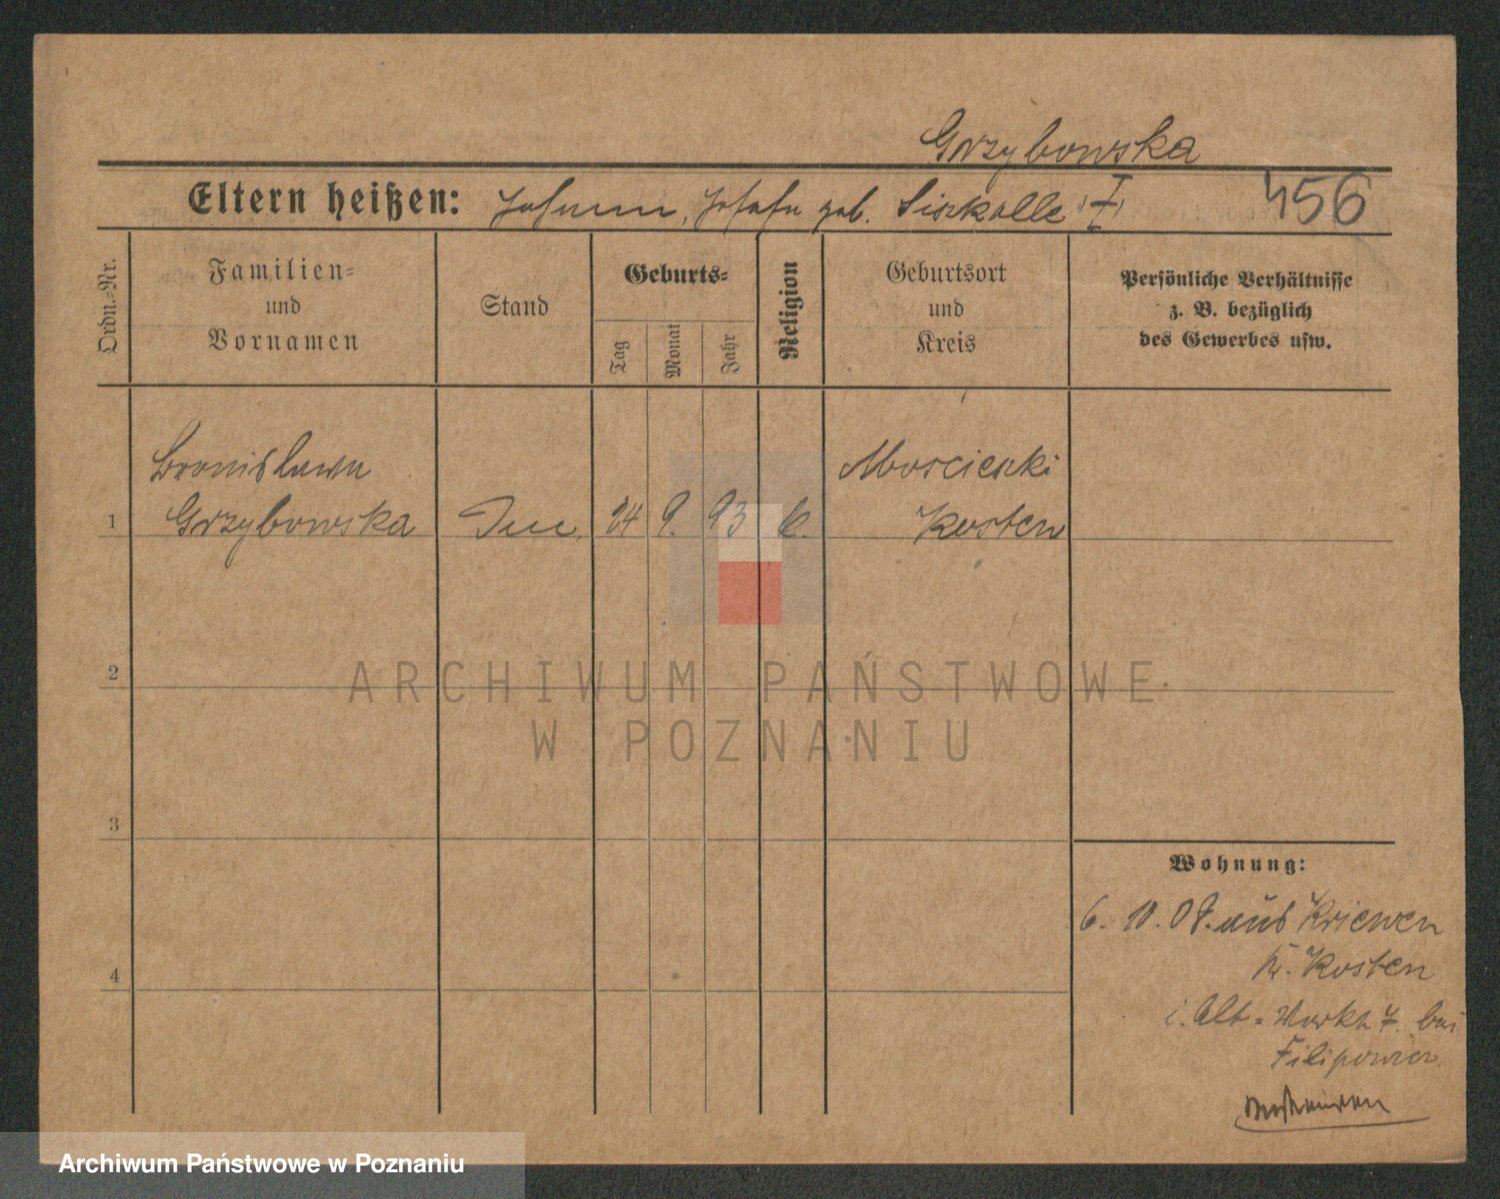 Grzybowska
Eltern heißen: Johann, Josefa geb. I
456
Ordn.-Nr.
Familien-
und
Vornamen
Stand
Geburts-
Tag
Monat
Jahr
Religion
Geburtsort
und
Kreis
Persönliche Verhältnisse
z. B. bezüglich
des Gewerbes usw.
Bronislawa
1 Grzybowska 24 9. 93 k.
Moscieszki
Kosten
2
ARCHIWUM PAŃSTWOWE
W POZNANIU
3
4
Wohnung:
6. 10. 08. aus Kriewen
Kr. Kosten
i. Alt-Markt 7. bei
Filipowicz
Archiwum Państwowe w Poznaniu